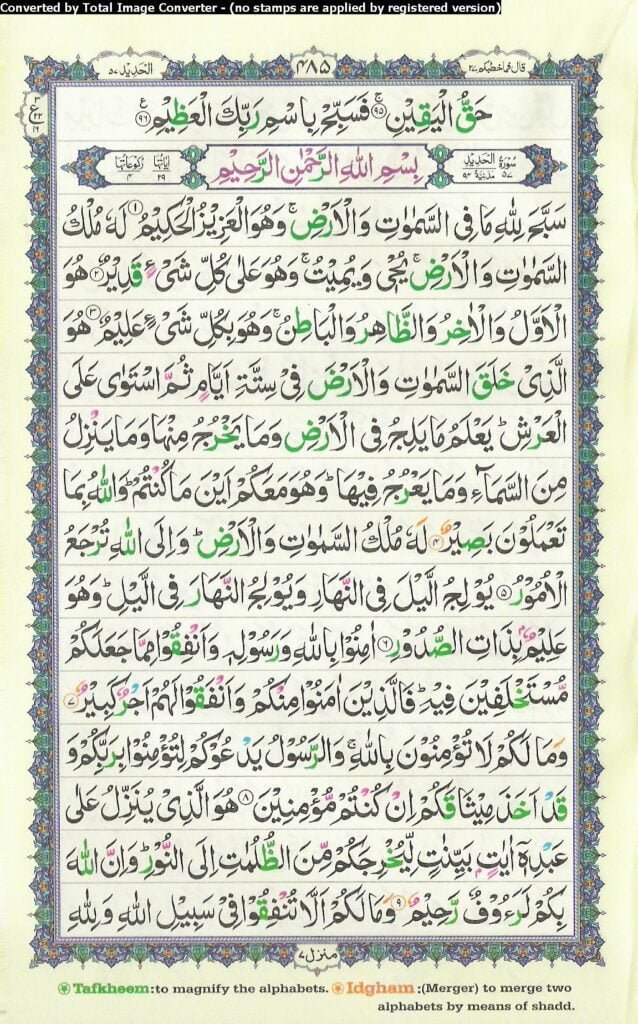 Converted by Total Image Converter - (no stamps are applied by registered version)
قال فما خطبكم ٢٧
٤٨٥
الحديد ٥٧
حَقُّ الْيَقِيْنِ ۚ‏﴿۹۵﴾ فَسَبِّحْ بِاسْمِ رَبِّكَ الْعَظِيْمِ ﴿۹۶﴾
سُوْرَةُ الْحَدِيْدِ
٥٧ مَدَنِيَّةٌ ٩٤
بِسْمِ اللّٰهِ الرَّحْمٰنِ الرَّحِيْمِ
اٰيَاتُهَا ٢٩
رُكُوْعَاتُهَا ٤
سَبَّحَ لِلّٰهِ مَا فِى السَّمٰوٰتِ وَالْاَرْضِ ۚ وَهُوَ الْعَزِيْزُ الْحَكِيْمُ ﴿۱﴾ لَهٗ مُلْكُ
السَّمٰوٰتِ وَالْاَرْضِ ۚ يُحْىٖ وَيُمِيْتُ ۚ وَهُوَ عَلٰى كُلِّ شَىْءٍ قَدِيْرٌ ﴿۲﴾ هُوَ
الْاَوَّلُ وَالْاٰخِرُ وَالظَّاهِرُ وَالْبَاطِنُ ۚ وَهُوَ بِكُلِّ شَىْءٍ عَلِيْمٌ ﴿۳﴾ هُوَ
الَّذِىْ خَلَقَ السَّمٰوٰتِ وَالْاَرْضَ فِىْ سِتَّةِ اَيَّامٍ ثُمَّ اسْتَوٰى عَلَى
الْعَرْشِ ؕ يَعْلَمُ مَا يَلِجُ فِى الْاَرْضِ وَمَا يَخْرُجُ مِنْهَا وَمَا يَنْزِلُ
مِنَ السَّمَآءِ وَمَا يَعْرُجُ فِيْهَا ؕ وَهُوَ مَعَكُمْ اَيْنَ مَا كُنْتُمْ ؕ وَاللّٰهُ بِمَا
تَعْمَلُوْنَ بَصِيْرٌ ﴿۴﴾ لَهٗ مُلْكُ السَّمٰوٰتِ وَالْاَرْضِ ؕ وَاِلَى اللّٰهِ تُرْجَعُ
الْاُمُوْرُ ﴿۵﴾ يُوْلِجُ الَّيْلَ فِى النَّهَارِ وَيُوْلِجُ النَّهَارَ فِى الَّيْلِ ؕ وَهُوَ
عَلِيْمٌۢ بِذَاتِ الصُّدُوْرِ ﴿۶﴾ اٰمِنُوْا بِاللّٰهِ وَرَسُوْلِهٖ وَاَنْفِقُوْا مِمَّا جَعَلَكُمْ
مُّسْتَخْلَفِيْنَ فِيْهِ ؕ فَالَّذِيْنَ اٰمَنُوْا مِنْكُمْ وَاَنْفَقُوْا لَهُمْ اَجْرٌ كَبِيْرٌ ﴿۷﴾
وَمَا لَكُمْ لَا تُؤْمِنُوْنَ بِاللّٰهِ ۚ وَالرَّسُوْلُ يَدْعُوْكُمْ لِتُؤْمِنُوْا بِرَبِّكُمْ وَ
قَدْ اَخَذَ مِيْثَاقَكُمْ اِنْ كُنْتُمْ مُّؤْمِنِيْنَ ﴿۸﴾ هُوَ الَّذِىْ يُنَزِّلُ عَلٰى
عَبْدِهٖۤ اٰيٰتٍۭ بَيِّنٰتٍ لِّيُخْرِجَكُمْ مِّنَ الظُّلُمٰتِ اِلَى النُّوْرِ ؕ وَاِنَّ اللّٰهَ
بِكُمْ لَرَءُوْفٌ رَّحِيْمٌ ﴿۹﴾ وَمَا لَكُمْ اَلَّا تُنْفِقُوْا فِىْ سَبِيْلِ اللّٰهِ وَلِلّٰهِ
منزل ٧
Tafkheem:to magnify the alphabets. Idgham :(Merger) to merge two
alphabets by means of shadd.